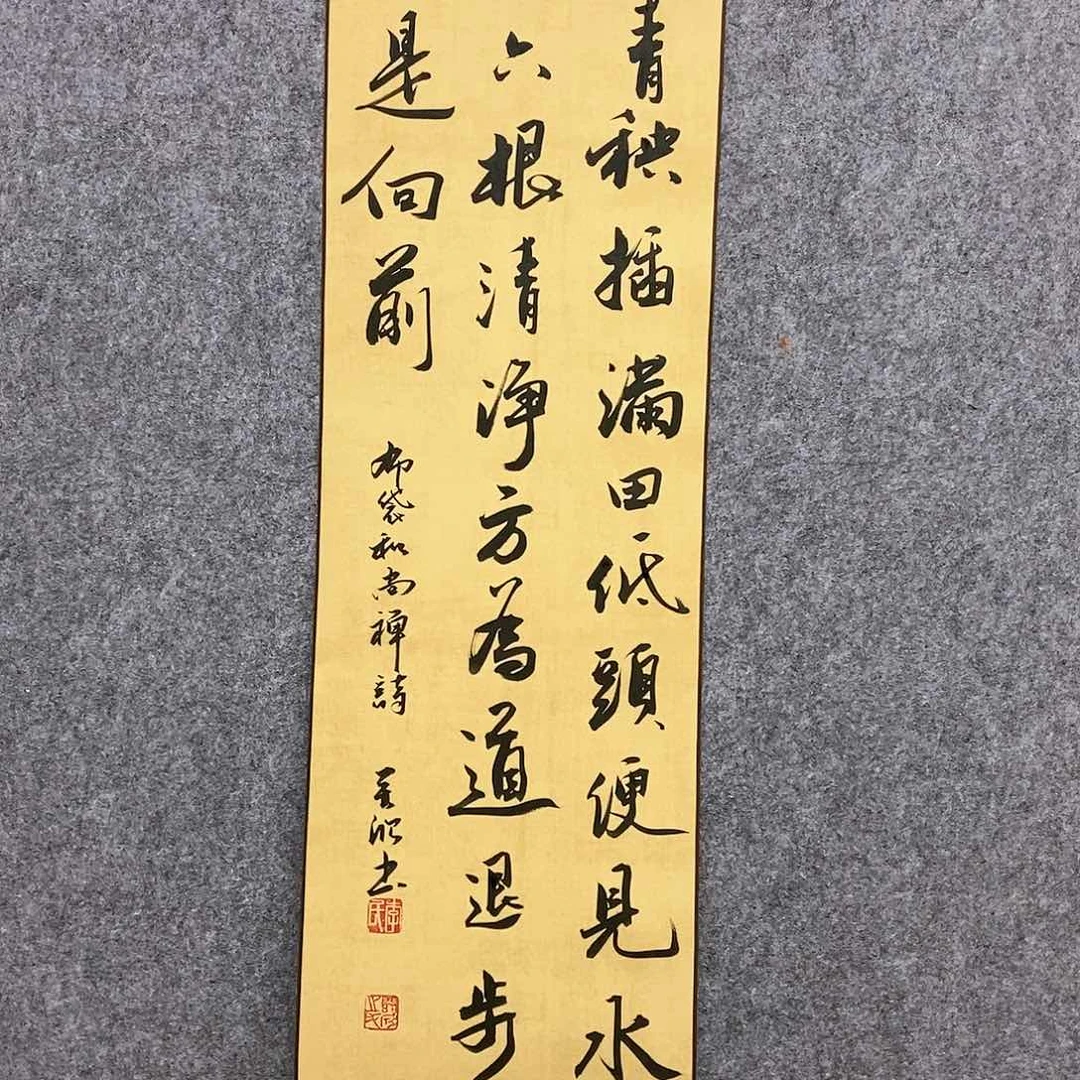 青秧插滿田低頭便見水
六根清净方為道退步
是向前
布袋和尚禪詩
書